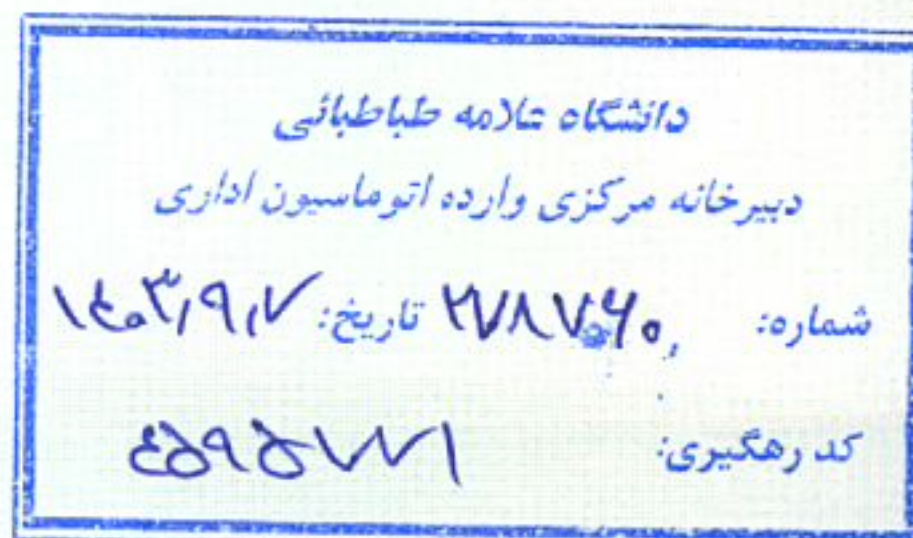 دانشگاه علامه طباطبائی
دبیرخانه مرکزی وارده اتوماسیون اداری
شماره: ۲۷۸۷۶۰ تاریخ: ۱۴۰۳٫۹٫۷
کد رهگیری: ۴۵۹۵۷۷۱